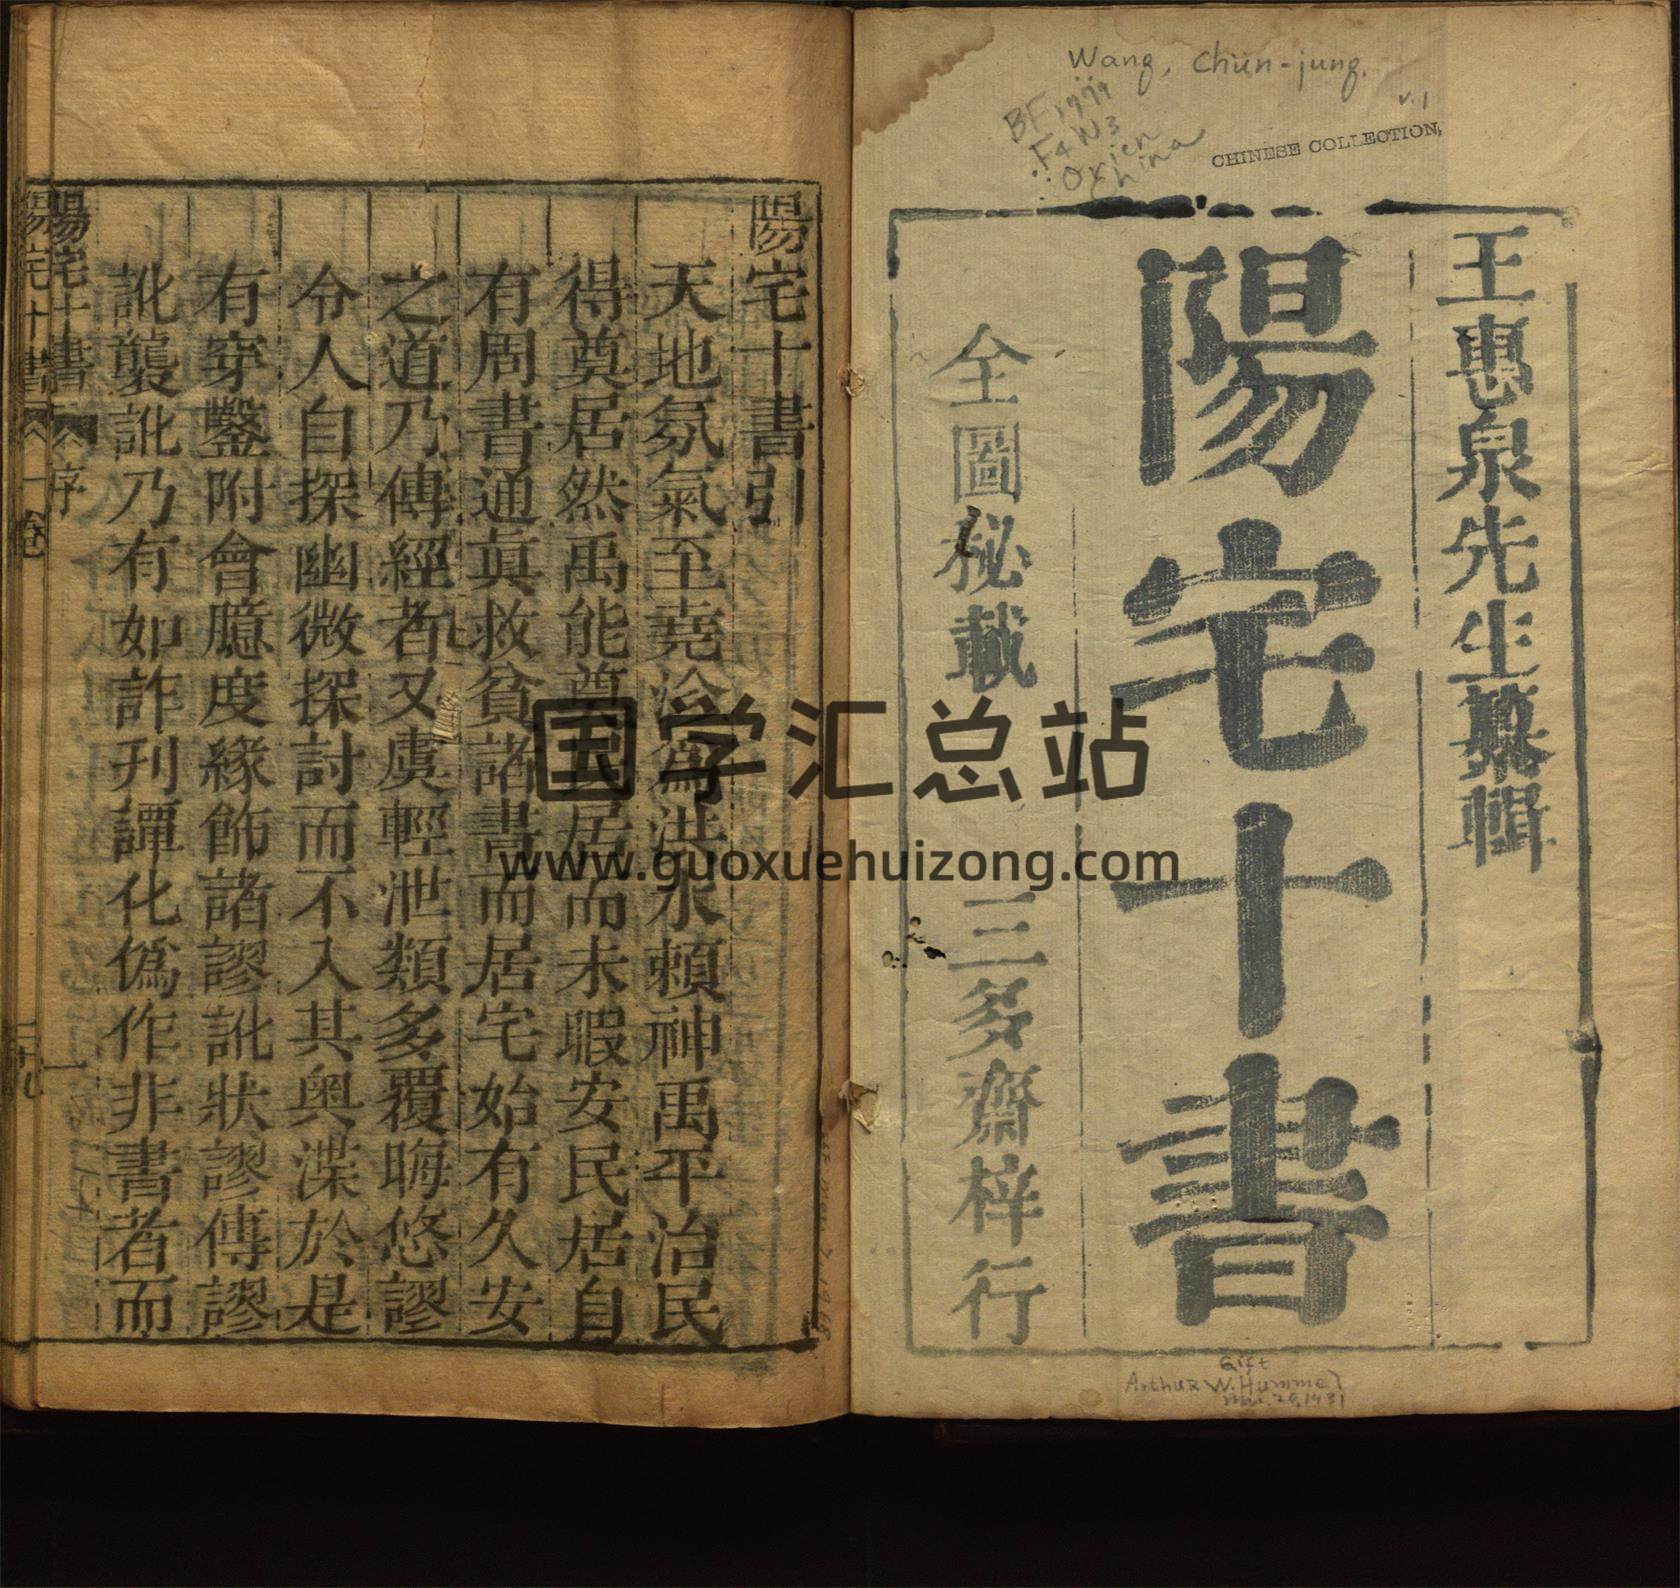 Wang, Chün-jung.
v.1
BF1779
.F4W3
Orien
China
CHINESE COLLECTION,
王惠泉先生纂輯
陽宅十書
全圖秘載 三多齋梓行
Gift
Arthur W. Hummel
Mar. 20, 1931
陽宅十書引
天地氛氣至堯淦為洪水賴神禹平治民
得奠居然禹能奠民居而未暇安民居自
有周書通真救貧諸書而居宅始有久安
之道乃傳經者又虞輕泄類多覆晦悠謬
令人自探幽微探討而不入其奥渫於是
有穿鑿附會臆度緣飾諸謬訛狀謬傳謬
訛襲訛乃有如詐刋譚化偽作非書者而
陽宅十書 序 一
陽宅十書 一卷
国学汇总站
www.guoxuehuizong.com